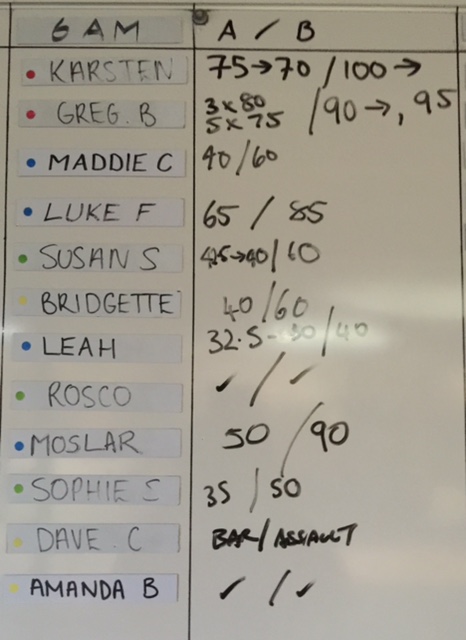 6 AM A / B
KARSTEN 75→70 / 100 →
GREG. B 3 x 80 / 90 →, 95
5 x 75
MADDIE C 40 / 60
LUKE F 65 / 85
SUSAN S 45→40 / 60
BRIDGETTE 40 / 60
LEAH 32.5-30 / 40
ROSCO ✓ / ✓
MOSLAR 50 / 90
SOPHIE S 35 / 50
DAVE. C BAR / ASSAULT
AMANDA B ✓ / ✓